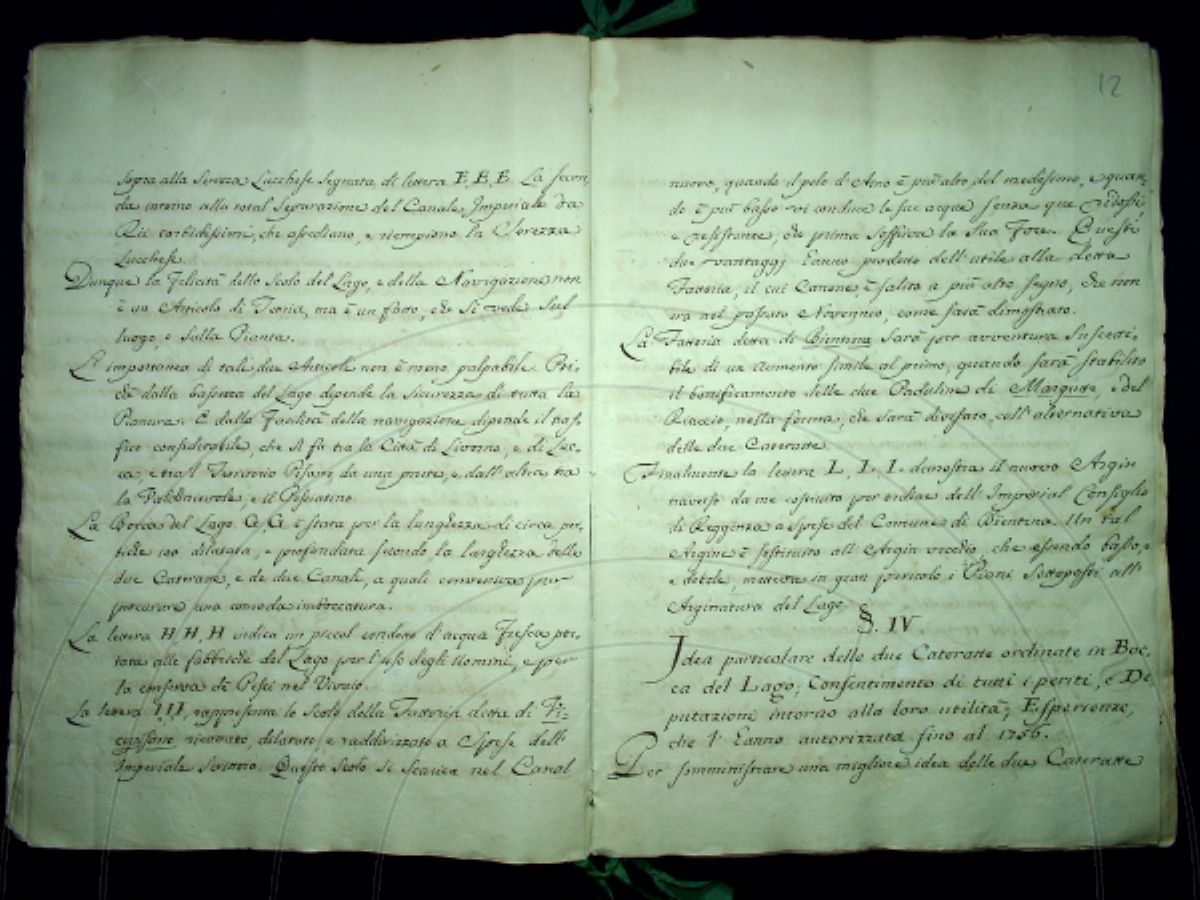 sopra alla Serezza Lucchese segnata di lettera E, E, E. La secon-
da intorno alla total separazione del Canale Imperiale da
Rii torbidissimi, che assediano, e riempiono la Serezza
Lucchese.
Dunque la Felicità dello Scolo del Lago, e della Navigazione non
è un Articolo di Teoria, ma è un fatto, che si vede sul
luogo, e sulla Pianta.
L'importanza di tali due Articoli non è meno palpabile. Poi-
chè dalla bassezza del Lago dipende la sicurezza di tutta la
Pianura. E dalla Facilità della navigazione dipende il traf-
fico considerabile, che si fa tra la Città di Livorno, e di Luc-
ca, e tra'l Territorio Pisano da una parte, e dall'altra tra
la Valdinievole, e il Pesciatino.
La Bocca del Lago G, G, è stata per la lunghezza di circa per-
tiche 100 dilatata, e profondata secondo la larghezza delle
due Cateratte, e de due Canali, a quali conveniva per
procurare una comoda imboccatura.
La lettera H, H, H indica un piccol condotto d'acqua Fresca por-
tata alle fabbriche del Lago per l'uso degli Uomini, e per
la conserva de Pesci nel Vivaio.
La lettera I I I, rappresenta lo Scolo della Fattoria detta di Vi-
copisano ricavato, dilatato, e raddirizzato a Spese dell'
Imperiale Scrittoio. Questo Scolo si scarica nel Canal
12
nuovo, quando il pelo d'Arno è più alto del medesimo, e quan-
do è più basso vi conduce le sue acque senza que ridossi,
e resistenze, che prima soffriva la sua Foce. Questi
due vantaggj hanno prodotto dell'utile alla detta
Fattoria, il cui Canone è salito a più alto segno, che non
era nel passato Novennio, come sarà dimostrato.
La Fattoria detta di Bientina sarà per avventura suscetti-
bile di un aumento simile al primo, quando sarà stabilito
il bonificamento delle due Paduline di e del
Riaccio, nella forma, che sarà divisato, coll'alternativa
delle due Cateratte.
Finalmente la lettera L, L, L dimostra il nuovo Argin
traverso da me costruito per ordine dell'Imperial Consiglio
di Reggenza a spese del Comune di Bientina. Un tal
Argine è sostituito all'Argin vecchio, che essendo basso, e
debole, metteva in gran pericolo i Piani sottoposti all'
Arginatura del Lago.
§. IV
Idea particolare delle due Cateratte ordinate in Boc-
ca del Lago; Consentimento di tutti i periti, e De-
putazioni intorno alla loro utilità; Esperienze,
che l'hanno autorizzata fino al 1756.
Per somministrare una migliore idea delle due Cateratte